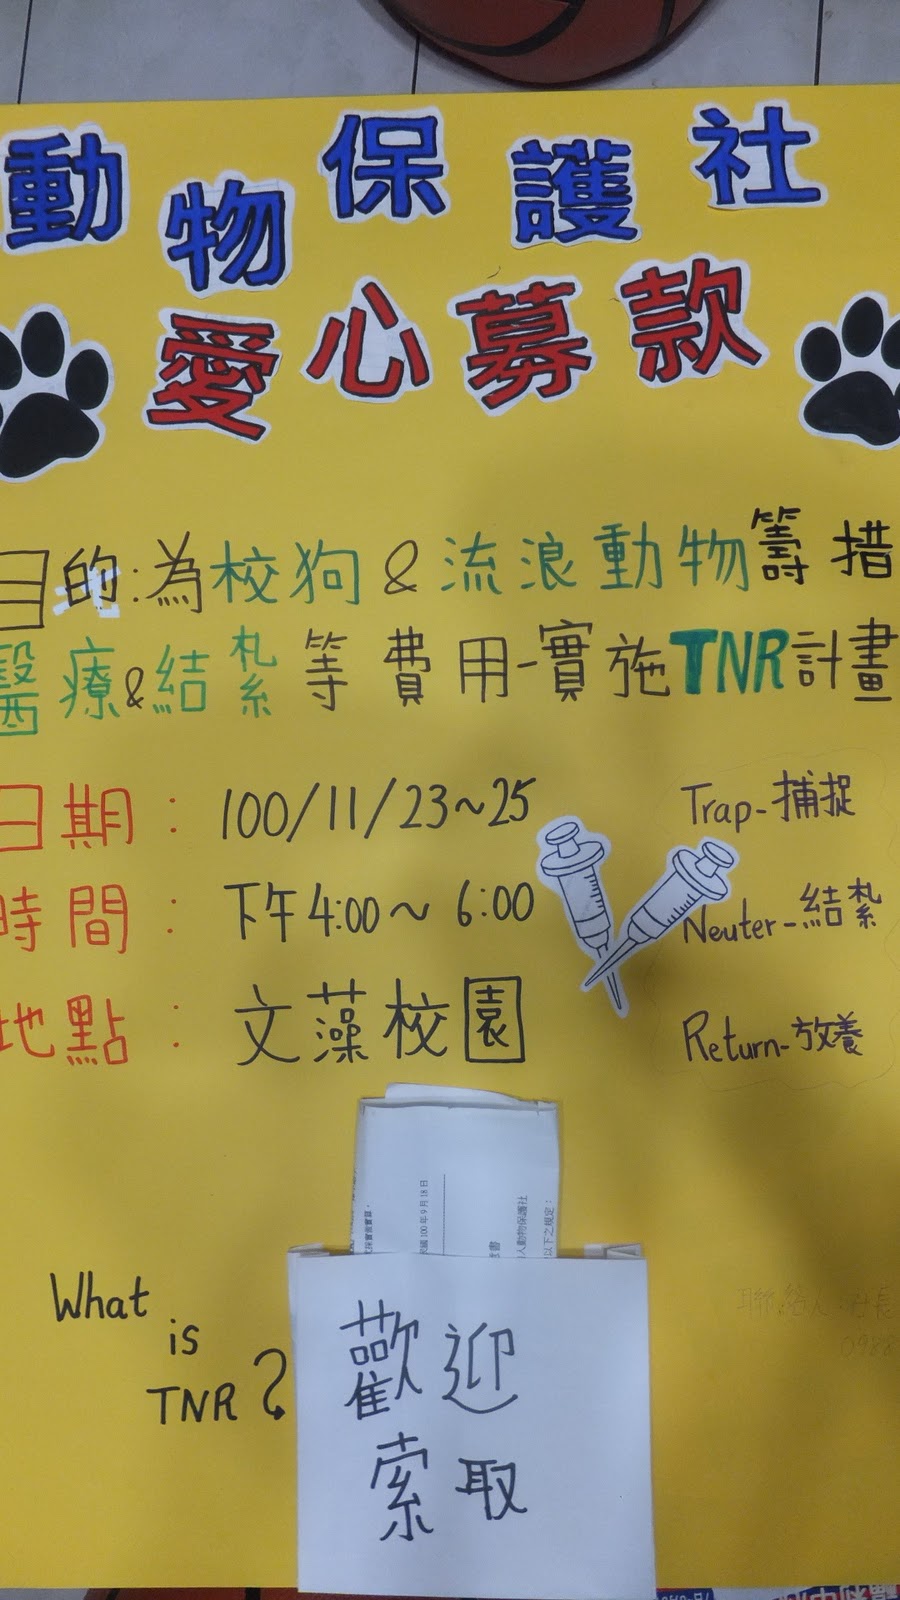 動物保護社
愛心募款
目的:為校狗&流浪動物籌措
醫療&結紮等費用-實施TNR計畫
日期： 100/11/23~25
時間： 下午4:00~6:00
地點： 文藻校園
Trap-捕捉
Neuter-結紮
Return-放養
國100年9月18日
人動物保護社
以下之規定：
What
is
TNR?
歡迎
索取
聯絡人:社長
0988